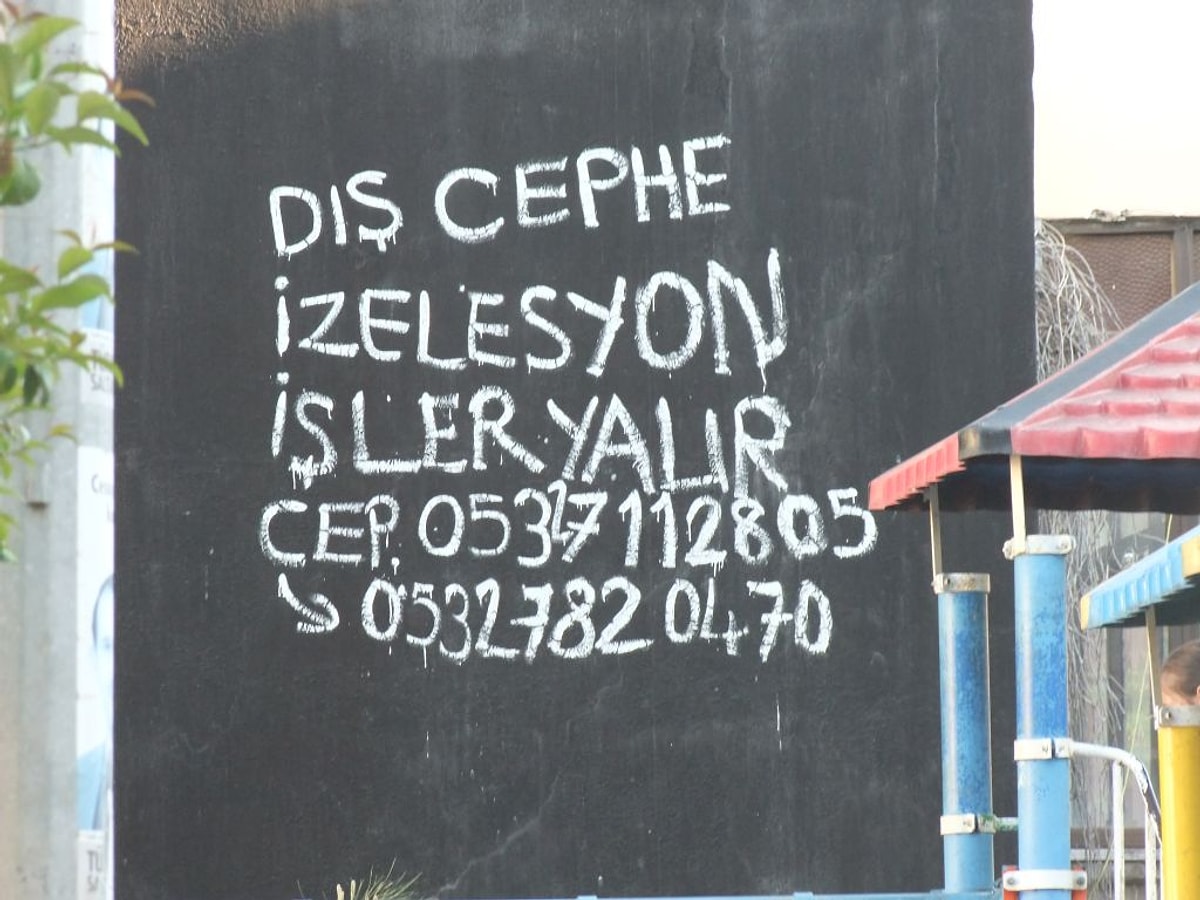 DIŞ CEPHE
İZELESYON
İŞLER YALIR
CEP. 05327112805
05327820470